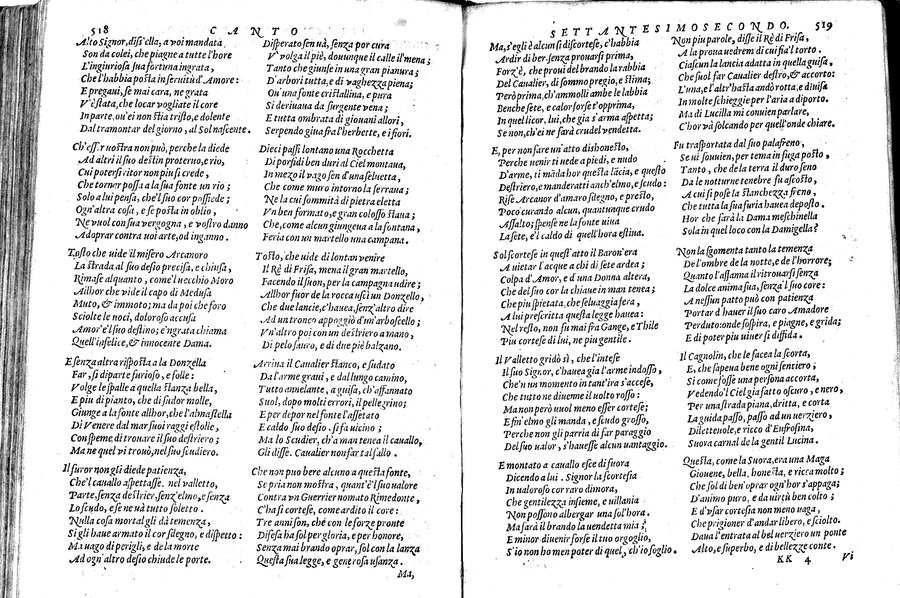 518 CANTO
Alto Signor, diss'ella, a voi mandata
Son da colei, che piagne a tutte l'hore
L'ingiuriosa sua fortuna ingrata,
Che l'habbia posta in seruitù d'Amore:
E pregaui, se mai cara, ne grata
V'è stata, che locar vogliate il core
In parte, ou'ei non stia tristo, e dolente
Dal tramontar del giorno, al Sol nascente.
Ch'esser uostra non può, perche la diede
Ad altri il suo destin proteruo, e rio,
Cui potersi ritor non piu si crede,
Che tornar possa a la sua fonte un rio;
Solo a lui pensa, che'l suo cor possiede;
Ogn'altra cosa, e se posta in oblio,
Ne vuol con sua vergogna, e vostro danno
Adoprar contra uoi arte, od inganno.
Tosto che uide il misero Arcanoro
La strada al suo desio precisa, e chiusa,
Rimase alquanto, come'l uecchio Moro
Allhor che vide il capo di Medusa
Muto, & immoto; ma da poi che foro
Sciolte le noci, doloroso accusa
Amor e'l suo destino; e'ngrata chiama
Quell'infelice, & innocente Dama.
E senza altra risposta a la Donzella
Far, si diparte furioso, e folle:
Volge le spalle a quella stanza bella,
E piu di pianto, che di sudor molle,
Giunge a la fonte allhor, che l'alma stella
Di Venere dal mar suoi raggi estolle,
Con speme di trouare il suo destriero;
Ma ne quel vi trouò, nel suo scudiero.
Il furor non gli diede patienza,
Che'l cauallo aspettasse, nel valletto,
Parte, senza destrier, senz'elmo, e senza
Lo scudo, e se nè uà tutto soletto.
Nulla cosa mortal gli dà temenza,
Si gli haue armato il cor sdegno, e dispetto:
Ma uago di perigli, e de la morte
Ad ogn'altro desio chiude le porte.
Disperato sen uà, senza por cura
V' volga il piè, douunque il calle il mena;
Tanto che giunse in una gran pianura;
D'arbori tutta, e di vaghezza piena;
Ou'una fonte cristallina, e pura
Si deriuaua da surgente vena;
E tutta ombrata di giouani allori,
Serpendo giua fra l'herbette, e i fiori.
Dieci passi lontano una Rocchetta
Di porfidi ben duri al Ciel montaua,
In mezo il vago sen d'una seluetta,
Che come muro intorno la serraua;
Ne la cui sommità di pietra eletta
Vn ben formato, e gran colosso staua;
Che, come alcun giungeua a la fontana,
Feria con un martello una campana.
Tosto, che uide di lontan venire
Il Rè di Frisa, mena il gran martello,
Facendo il suon, per la campagna udire;
Allhor fuor de la rocca uscì un Donzello,
Che due lancie, c'hauea, senz'altro dire
Ad un tronco appoggiò d'un'arboscello;
Vn'altro poi con un destriero a mano,
Di pelo sauro, e di due piè balzano.
Arriua il Caualier stanco, e sudato
Da l'arme graui, e dal lungo camino,
Tutto annelante, a guisa, ch'affannato
Suol, dopo molti errori, il pellegrino;
E per depor nel fonte l'assetato
E caldo suo desio. si fa uicino;
Ma lo Scudier, ch'a man tenea il cauallo,
Gli disse. Caualier non far tal fallo.
Che non puo bere alcuno a questa fonte,
Se pria non mostra, quant'è'l suo ualore
Contra vn Guerrier nomato Rimedonte,
C'ha si cortese, come ardito il core:
Tre anni son, chè con le forze pronte
Difesa ha sol per gloria, e per honore,
Senza mai brando oprar, sol con la lanza
Questa sua legge, e generosa usanza.
Ma,
SETTANTESIMOSECONDO. 519
Ma, s'egli è alcun si discortese, c'habbia
Ardir di ber senza prouarsi prima,
Forz'è, che proui del brando la rabbia
Del Caualier, di sommo pregio, e stima;
Però prima, ch'ammolli ambe le labbia
Benche sete, e calor forse t'opprima,
In quel licor, lui, che gia s'arma aspetta;
Se non, ch'ei ne farà crudel vendetta.
E, per non fare un'atto dishonesto,
Perche uenir ti uede a piedi, e nudo
D'arme, ti māda hor questa lācia, e questo
Destriero, e manderatti anch'elmo, e scudo:
Rise Arcanor d'amaro sdegno, e presto,
Poco curando alcun, quantunque crudo
Assalto; spense ne la fonte uiua
La sete, e'l caldo di quell'hora estiua.
Sol scortese in quest'atto il Baron'era
A uietar l'acque a chi di sete ardea;
Colpa d'Amor, e d'una Donna altera,
Che del suo cor la chiaue in man tenea;
Che piu spietata, che seluaggia fera,
A lui prescritta questa legge hauea:
Nel resto, non fu mai fra Gange, e Thile
Piu cortese di lui, ne piu gentile.
Il Valletto gridò sì, che l'intese
Il suo Signor, c'hauea gia l'arme indosso,
Che'n un momento in tant'ira s'accese,
Che tutto ne diuenne il uolto rosso:
Ma non però uuol meno esser cortese;
E fin'elmo gli manda, e scudo grosso,
Perche non gli parria di far paraggio
Del suo valor, s'hauesse alcun uantaggio.
E montato a cauallo esce di fuora
Dicendo a lui. Signor la scortesia
In ualoroso cor raro dimora,
Che gentilezza insieme, e uillania
Non possono albergar una sol'hora.
Ma farà il brando la uendetta mia;
E minor diuenir forse il tuo orgoglio,
S'io non ho men poter di quel, ch'io soglio.
Non piu parole, disse il Rè di Frisa,
A la proua uedrem di cui sia'l torto.
Ciascun la lancia adatta in quella guisa,
Che suol far Caualier destro, & accorto:
L'una, e l'altr'hasta andò rotta, e diuisa
In molte schieggie per l'aria a diporto.
Ma di Lucilla mi conuien parlare,
C'hor va solcando per quell'onde chiare.
Fu trasportata dal suo palafreno,
Se ui souuien, per tema in fuga posto,
Tanto, che da la terra il duro seno
Da le notturne tenebre fu ascosto,
A cui si pose la stanchezza freno,
Che tutta la sua furia hauea deposto.
Hor che farà la Dama meschinella
Sola in quel loco con la Damigella?
Non la sgomenta tanto la temenza
De l'ombre de la notte, e de l'horrore;
Quanto l'assama il ritrouarsi senza
La dolce anima sua, senza'l suo core:
A nessun patto può con patienza
Portar d'hauer il suo caro Amadore
Perduto: onde sospira, e piagne, e grida;
E di poter piu uiuer si diffida.
Il Cagnolin, che le facea la scorta,
E, che sapeua bene ogni sentiero;
Si come fosse una persona accorta,
Vedendo'l Ciel gia fatto oscuro, e nero,
Per una strada piana, dritta, e corta
La guida passo, passo ad un verziero,
Diletteuole, e ricco d'Eufrosina,
Suora carnal de la gentil Lucina.
Questa, come la Suora, era una Maga
Giouene, bella, honesta, e ricca molto;
Che sol di ben'oprar ogn'hor s'appaga;
D'animo puro, e da uirtù ben colto;
E d'vsar cortesia non meno uaga,
Che prigioner d'andar libero, e sciolto.
Daua l'entrata al bel uerziero un ponte
Alto, e superbo, e di bellezze conte.
KK 4 Vi